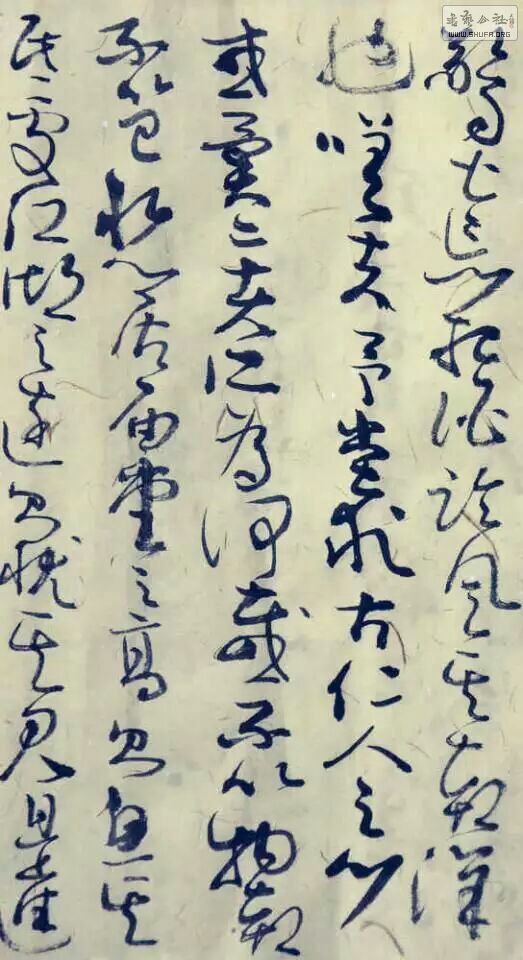 寵辱皆忘把酒臨風其喜洋
嗟夫予嘗求古仁人之心
或異二者之為何哉不以物喜
不以己悲居廟堂之高則憂其
民處江湖之遠則憂其君是進
書藝公社
WWW.SHUFA.ORG